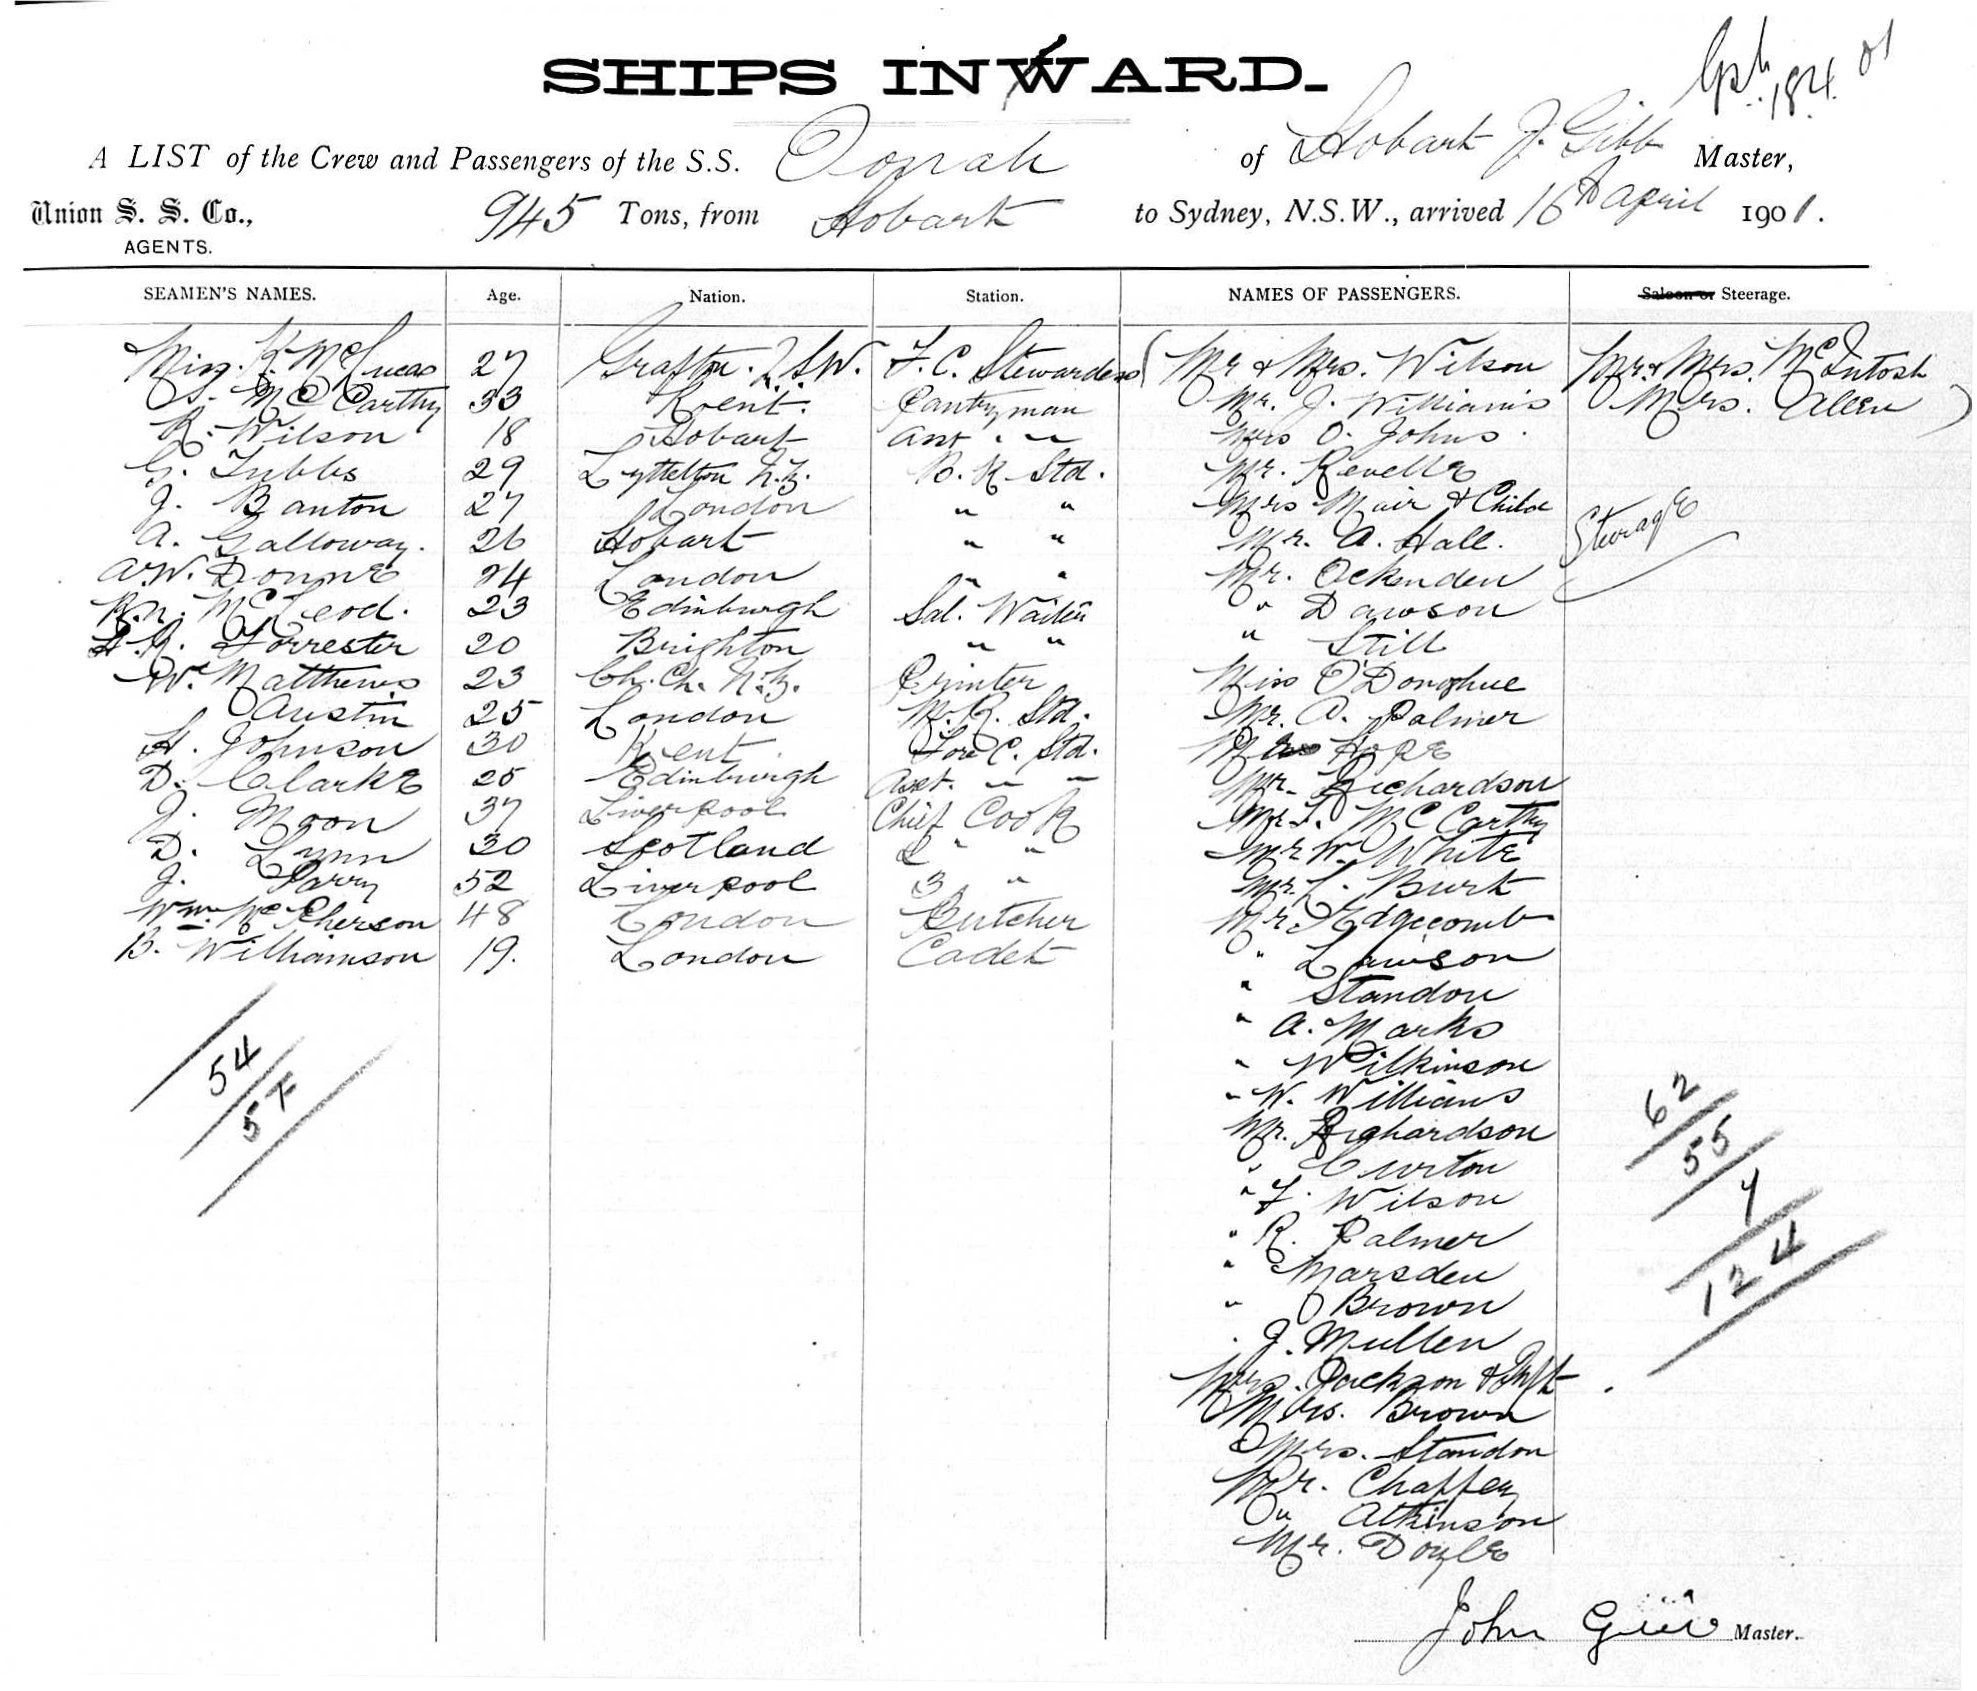 SHIPS INWARD.
18.4.01
A LIST of the Crew and Passengers of the S.S. Oonah of Hobart J. Gibb Master,
Union S. S. Co., 945 Tons, from Hobart to Sydney, N.S.W., arrived 16th April 1901.
AGENTS.
SEAMEN'S NAMES. Age. Nation. Station. NAMES OF PASSENGERS. Saloon or Steerage.
Miss. K. McLucas 27 Grafton. NSW. F. C. Stewardess Mr & Mrs. Wilson Mr & Mrs. McIntosh
McCarthy 33 Kent. Pantryman Mr. J. Williams Mrs. Allen
R. Wilson 18 Hobart Asst. " Mrs O. Johns.
G. Tubbs 29 Lyttelton N.Z. B. R. Std. Mr. Revelle
J. Banton 27 London " " Mrs Muir & Child
A. Galloway. 26 Hobart " " Mr. A. Hall. Steerage
A.W. Donne 24 London " " Mr. Ockenden
R.N. McLeod. 23 Edinburgh Sal. Waiter " Dawson
Forrester 20 Brighton " " " Still
W. Matthews 23 Ch. Ch. N.Z. Printer Miss O'Donoghue
Austin 25 London M. R. Std. Mr. A. Palmer
H. Johnson 30 Kent. Fore C. Std. Hope
D. Clarke 25 Edinburgh Asst. " " Mr. Richardson
J. Moon 37 Liverpool Chief Cook Mr. McCarthy
D. Lynn 30 Scotland 2 " " Mr W. White
J. Parry 52 Liverpool 3 " Mr. Burk
Wm. McPherson 48 London Butcher Mr. Edgecomb
B. Williamson 19. London Cadet " Lawson
" Standon
" A. Marks
" Wilkinson
" W. Williams
Mr. Richardson
" Curton
" F. Wilson
" R. Palmer
" Marsden
" Brown
" J. Mullen
Mrs. Jackson & Inft
Mrs. Brown
Mrs. Standon
Mr. Chaffey
" Atkinson
Mr. Doyle
54
57
62
55
7
124
John Gibb Master.